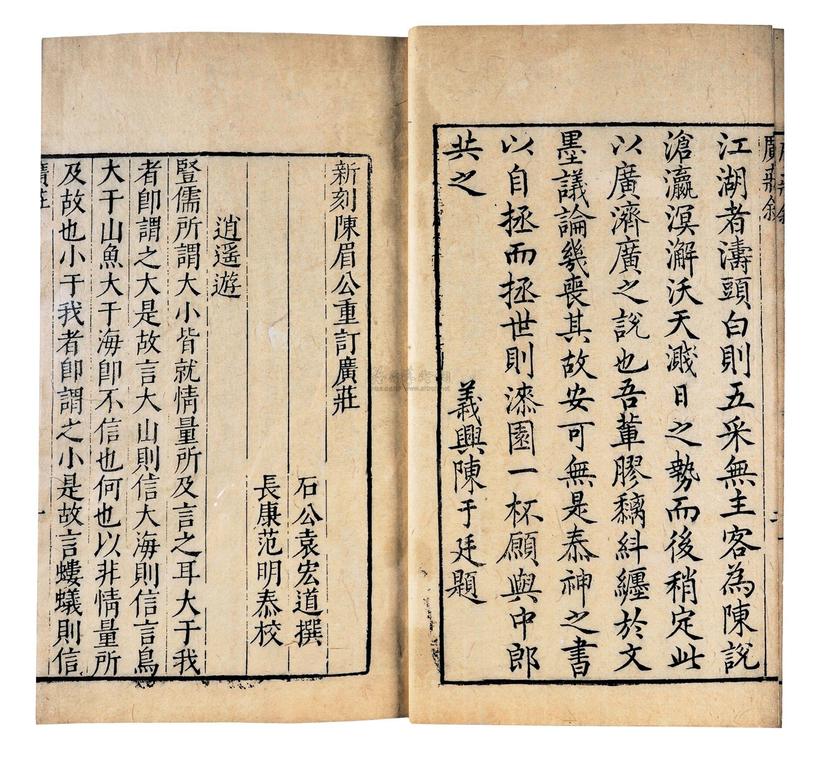 廣莊叙
江湖者濤頭白則五采無主客為陳說
滄瀛溟澥沃天濺日之勢而後稍定此
以廣濟廣之說也吾輩膠黐糾纏於文
墨議論幾喪其故安可無是泰神之書
以自拯而拯世則漆園一杯願與中郎
共之
義興陳于廷題
新刻陳眉公重訂廣莊
石公袁宏道撰
長康范明泰校
逍遥遊
豎儒所謂大小皆就情量所及言之耳大于我
者卽謂之大是故言大山則信大海則信言鳥
大于山魚大于海卽不信也何也以非情量所
及故也小于我者卽謂之小是故言螻蟻則信
廣莊
一